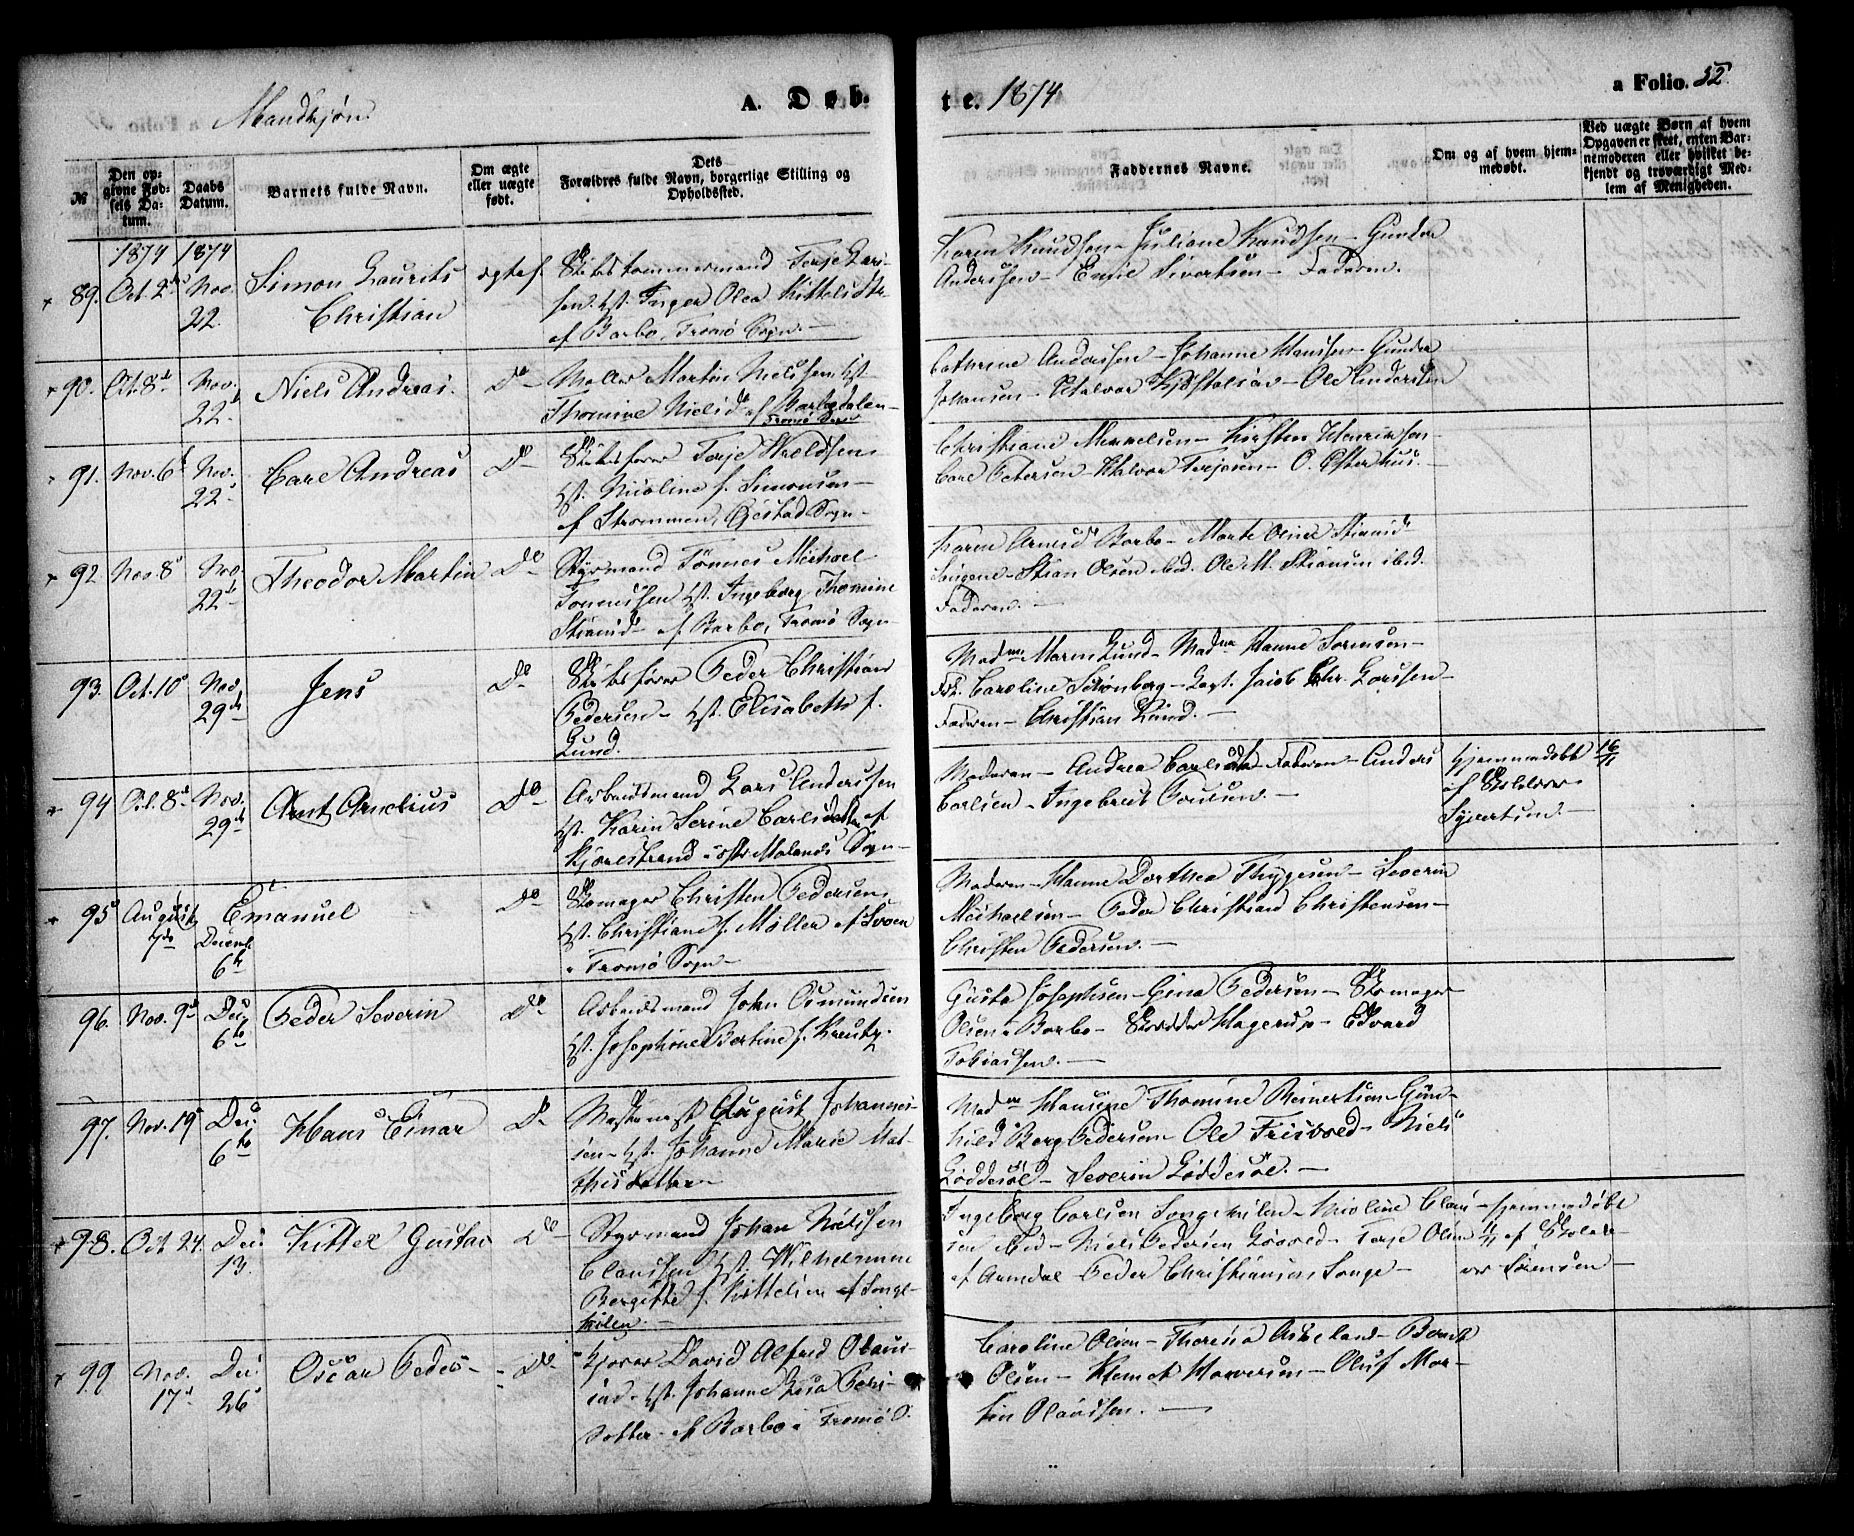 Mandkjøn. A. Døb-
te. 1874 a Folio. 52.
№
Den op-
givne Fød-
sels Da-
tum.
Daabs
Datum.
Barnets fulde Navn.
Om ægte
eller uægte
født.
Dets
Forældres fulde Navn, borgerlige Stilling og
Opholdssted.
Faddernes Navne.
Om og af hvem hjem-
medøbt.
Ved uægte Børn af hvem
Opgaven er skeet, enten Bar-
nemoderen eller hvilket be-
kjendt og troværdigt Med-
lem af Menigheden.
1874 1874
89. Oct. 2 Nov.
22.
Simon Laurits
Christian
ægtef.
Skibstømmermand Terje Lari-
sen. Hst. Inger Olea Kittelsdtr.
af Barbo, Tromø Sogn.
Karen Knudsen - Juliane Knudsen - Gunder
Anderssen - Emil Sivertsen - Faderen.
90. Oct. 8 Nov.
22
Niels Andreas.
Do
Møller Martin Nielssen Hst.
Thomine Nielsd. af Barbodalen
Tromø Sogn
Cathrine Anderssen - Johanne Hanssen - Gunder
Johansen - Halvor - Ole Anderssen
91. Nov. 6 Nov.
22
Carl Andreas
Do
Skibsfører Terje Weldsen
Hst. Nicoline f. Simonsen
af Strømmen, Øiestad Sogn
Christiane Mikkelsen - Kirsten Henriksen
Carl Petersen - Halvor Terjesen - O. Osterhus.
92 Nov. 8 Nov.
22
Theodor Martin
Do
Styrmand Tønnes Michael
Tønnessen Hst. Ingeborg Thomine
af Barbo, Tromø Sogn
Karen Barbo - Marte Oline
Songene - Stian Olsen ibd. Ole M. Stiansen ibd.
Faderen.
93. Oct. 10 Nov.
29
Jens
Do
Skibsfører Peder Christian
Pedersen - Hst. Elisabeth f.
Lund.
Madme Maren Lund - Madme Hanne Sørensen -
Frk. Caroline Schønberg - Capt. Jacob Chr. Larssen
Faderen - Christian Lund.
94 Oct. 8 Nov.
29
Arnt Arnelius
Do
Arbeidsmand Lars Anderssen
Hst. Karin Serine Carlsdatter af
Kjørlestrand i østre Molands Sogn
Moderen - Andrea Carlsdtr - Faderen - Anders
Carlsen - Ingebret
hjemmedøbt 16/11
af Skolelærer
Syvertsen.
95 August
7de
Decemb.
6te
Emanuel
Do
Skomager Christen Pedersen
Hst. Christiane f. Møller af Sveen
i Tromø Sogn
Moderen - Hanne Dorthea Thygesen - Severin
Michaelsen - Peder Christian Christensen -
Christen Pedersen.
96. Nov. 9 Dec.
6te
Peder Severin
Do
Arbeidsmand John Osmundsen
Hst. Josephine Bertine f. Kreutz.
Gusta Josephsen - Gina Pedersen - Skomager
Olsen i Barbo - Skrædder Hagerup - Edvard
Tobiassen.
97. Nov. 19 Dec.
6te
Hans Einar
Do
August Johannes-
sen - Hst. Johanne Marie Mat-
thisdatter
Madme Hansine Thomine Reinertsen - Gun-
hild Berg Pedersen - Ole Friisvold - Niels
Løddesøl - Severin Løddesøl.
98. Oct 24. Dec.
13.
Kittel Gustav
Do
Styrmand Johan Nielssen
Claussen Hst. Wilhelmine
Bergitte f. Kittelsen af Songe-
kilen.
Ingeborg Carlsen Songekilen - Nicoline Claus-
sen ibid - Niels Pedersen - Terje Olsen
af Arendal - Peder Christiansen, Songe -
hjemmedøbt
af Skolelæ-
rer Sørensen
99 Nov.
17
Dec.
26
Oscar Peder
Do
Kjører David Alfred Olaus-
sen - Hst. Johanne Lisa Peters-
dotter af Barbo i Tromø S.
Caroline Olsen - Theresia Askeland - Bernt
Olsen - Halvorsen - Oluf Mar-
tin Olaussen.